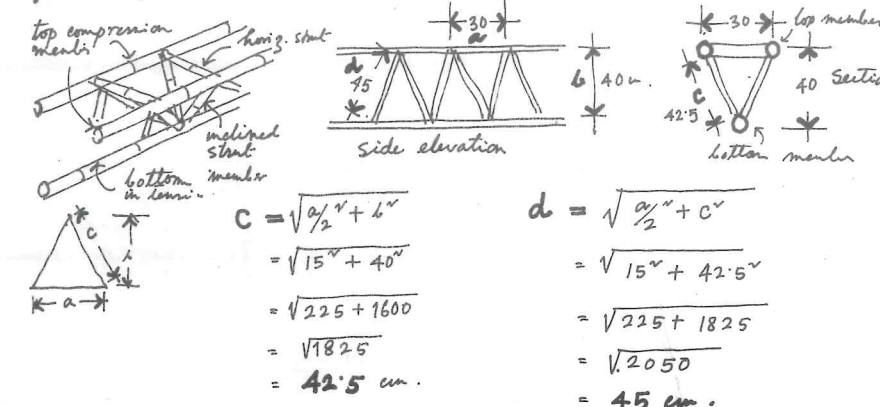 top compression
member
horiz. strut
inclined
strut
member
bottom
in tension
a
c
b
30
a
d
45
b 40
side elevation
30
top member
c
42.5
40 Sectio
bottom member
c = √a/2² + b²
= √15² + 40²
= √225 + 1600
= √1825
= 42.5 cm.
d = √a/2² + c²
= √15² + 42.5²
= √225 + 1825
= √2050
= 45 cm.